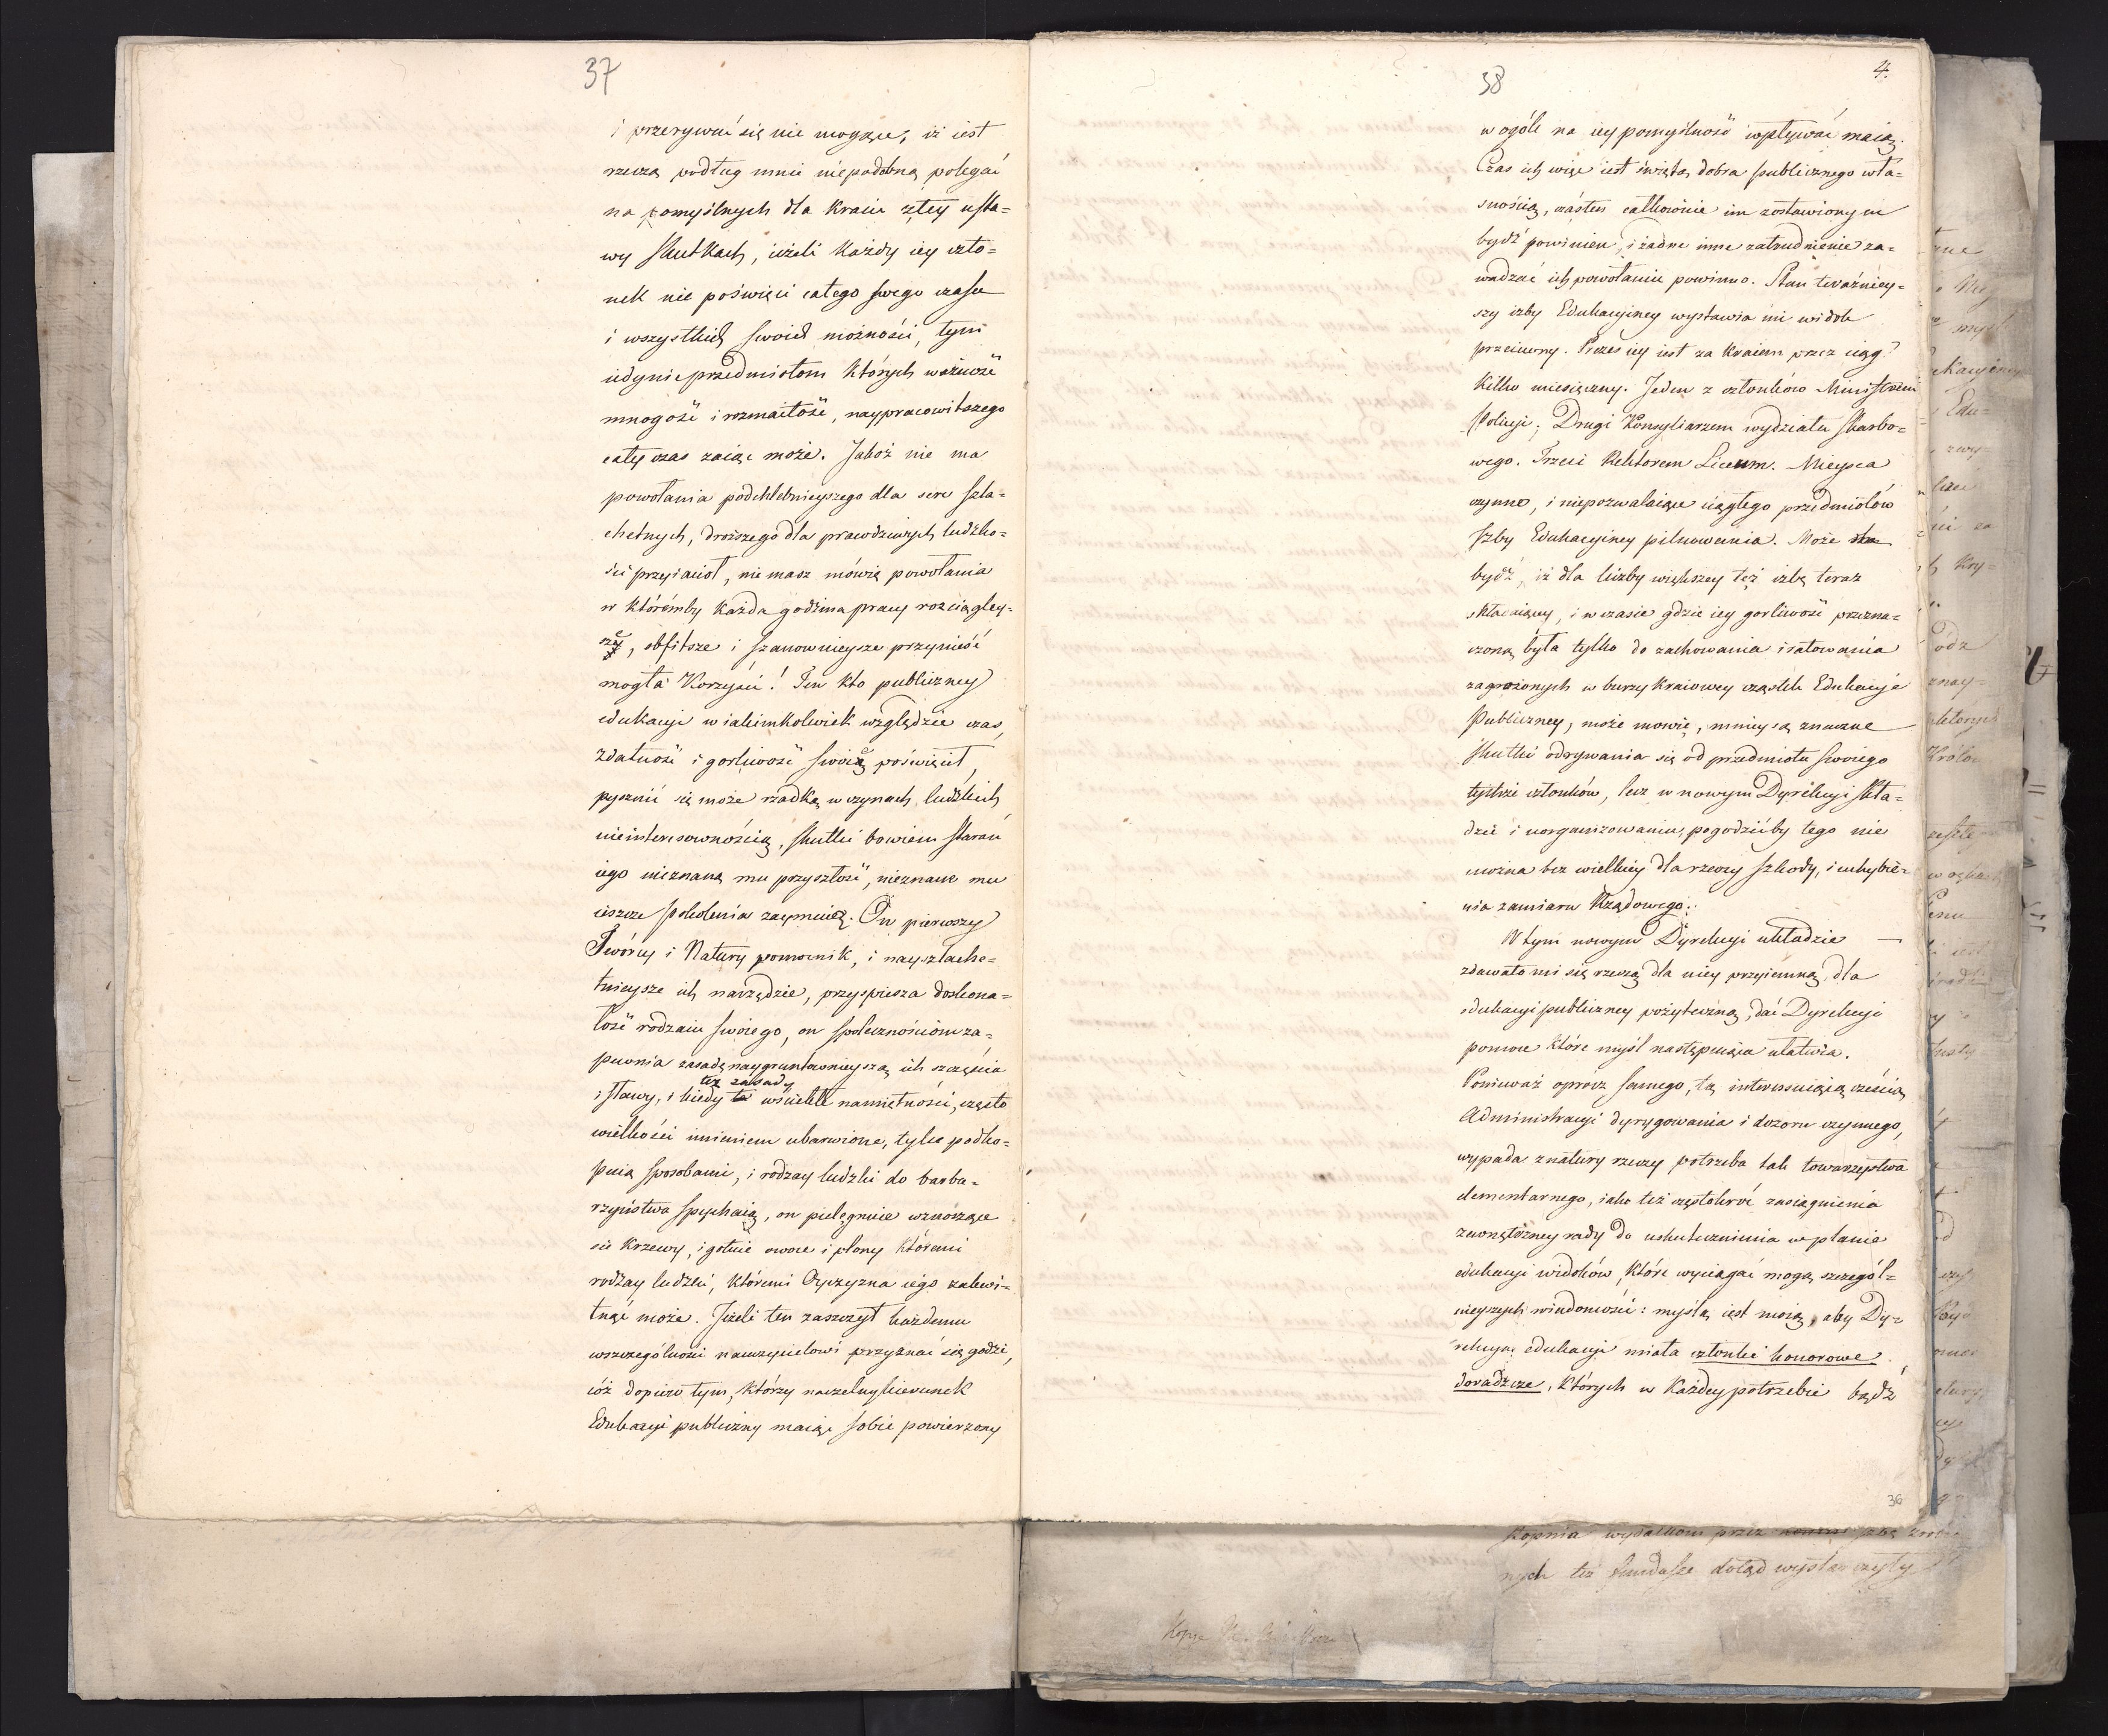 37
i przerywać się nie mogące, iż iest
rzeczą podług mnie niepodobną polegać
na pomyślnych dla Kraiu z téy usta=
wy skutkach, ieżeli każdy iey czło=
nek nie poświęci całego swego czasu
i wszystkich swoich możności, tym
iedynie przedmiotom których ważność
mnogość i rozmaitość, naypracowitszego
cały czas zaiąć może. Jakoż nie ma
powołania podchlebnieyszego dla serc szla=
chetnych, droższego dla prawdziwych ludzko=
ści przyiaciół, nie masz mówię powołania
w którémby każda godzina pracy rozciągley=
sze, obfitsze i szanownieysze przynieść
mogła korzyści! Ten kto publiczney
edukacyi w iakimkolwiek względzie czas,
zdatność i gorliwość swoię poświęcił,
pysznić się może rzadką w czynach ludzkich
nieinteresownością, skutki bowiem starań
iego nieznaną mu przyszłość, nieznane mu
ieszcze pokolenia zaymuią. On pierwszy
Twórcy i Natury pomocnik, i nayszlache=
tnieysze ich narzędzie, przyspiesza doskona=
łość rodzaiu swoiego, on społecznościom za=
pewnia zasadę naygruntownieyszą ich szczęścia
też zasady
i sławy, i kiedy wściekłe namiętności, często
wielkości imieniem ubarwione, tylu podko=
puią sposobami, i rodzay ludzki do barba=
rzyństwa spychaią, on pielęgnuie wznoszące
się krzewy, i gotuie owoce i plony którémi
rodzay ludzki, którémi Oyczyzna iego zakwi=
tnąć może. Jeżeli ten zaszczyt każdemu
wszczególności nauczycielowi przyznać się godzi,
cóż dopiero tym, którzy naczelny kierunek
Edukacyi publiczny maiąc sobie powierzony
38
4.
w ogóle na iey pomyślność wpływać maią.
Czas ich więc iest świętą dobra publicznego wła=
snością, czas ten całkowicie im zostawionym
bydź powinien, i żadne inne zatrudnienie za=
wadzać ich powołaniu powinno. Stan teraźniey=
szy izby Edukacyiney wystawia mi widok
przeciwny. Prezes iey iest za kraiem przez ciąg
kilko miesięczny. Jeden z członków Ministrem
Policyi; Drugi Konsyliarzem wydziału skarbo=
wego. Trzeci Rektorem Liceum. Mieysca
czynne, i niepozwalaiące ciągłego przedmiotów
Izby Edukacyiney pilnowania. Może
bydź, iż dla liczby większey też izbę teraz
składaiącey, i w czasie gdzie iey gorliwość przezna=
czoną była tylko do zachowania i ratowania
zagrożonych w burzy kraiowey cząstek Edukacyi
Publiczney, może mówię, mniey są znaczne
skutki odrywania się od przedmiotu swoiego
tychże członków, lecz w nowym Dyrekcyi skła=
dzie i uorganizowaniu, pogodzićby tego nie
można bez wielkiey dla rzeczy szkody, i uchybie=
nia zamiaru Rządowego.
W tym nowym Dyrekcyi układzie
zdawało mi się rzeczą dla niey przyiemną, dla
edukacyi publiczney pożyteczną, dać Dyrekcyi
pomoc które myśl następuiąca ułatwia.
Ponieważ oprócz samego, tą interessuiącą częścią
Administracyi dyrygowania i dozoru czynnego,
wypada z natury rzeczy potrzeba tak towarzystwa
elementarnego, iako też częstokroć zasiągnienia
zewnętrzney rady do uskutecznienia w planie
edukacyi widoków, które wyciągać mogą szczegól=
nieyszych wiadomości: myślą iest moią, aby Dy=
rekcya edukacyi miała członki honorowe
doradzcze, których w każdey potrzebie bądź
36